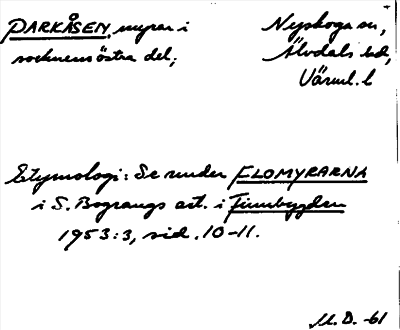 PARKÅSEN, myrar i
socknens östra del;
Nyskoga sn,
Älvdals hd,
Värml. l
Etymologi: Se under FLOMYRARNA
i S. Bograngs art. i Finnbygden
1953:3, sid. 10-11.
M.D. -61